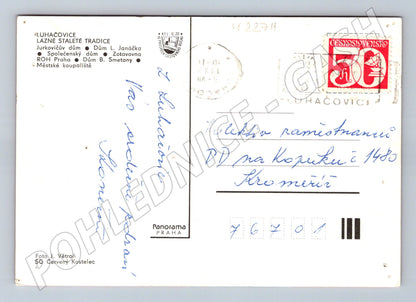 LUHAČOVICE
LÁZNĚ STALETÉ TRADICE
Jurkovičův dům • Dům L. Janáčka
• Společenský dům • Zotavovna
ROH Praha • Dům B. Smetany •
Městské koupaliště
Z Luhačovic
Vás srdečně zdraví
Foto J. Větroň
SO Červený Kostelec
Panorama
PRAHA
ČESKOSLOVENSKO
50
LUHAČOVICE
Kolektiv zaměstnanců
na Kopečku č 1480
Kroměříž
76701
POHLEDNICE - GASH